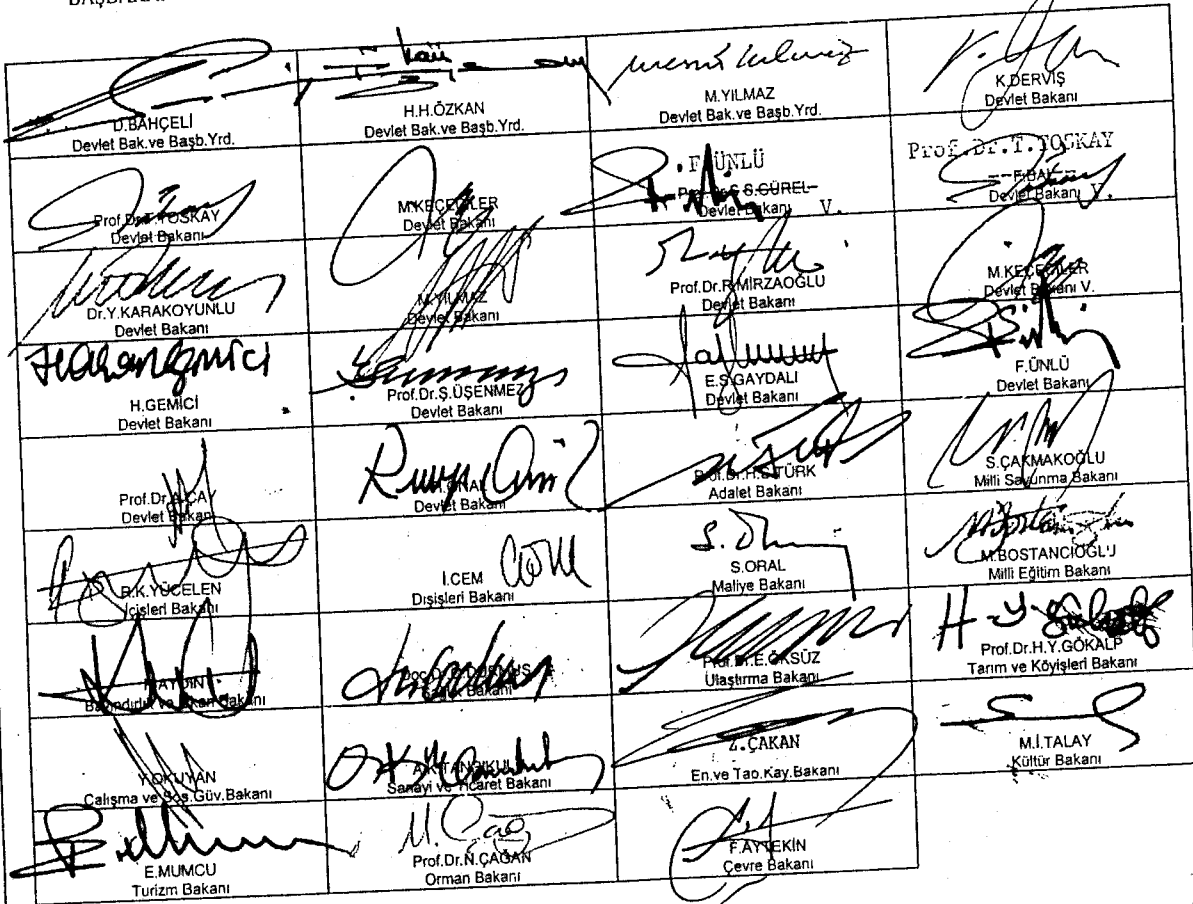 D.BAHÇELİ
Devlet Bak.ve Başb.Yrd.
H.H.ÖZKAN
Devlet Bak.ve Başb.Yrd.
M.YILMAZ
Devlet Bak.ve Başb.Yrd.
K.DERVİŞ
Devlet Bakanı
Prof.Dr.T.TOSKAY
Devlet Bakanı
M.KEÇECİLER
Devlet Bakanı
F.ÜNLÜ
Prof.Dr.Ş.S.GÜREL
Devlet Bakanı V.
Prof.Dr.T.TOSKAY
F.BAL
Devlet Bakanı V.
Dr.Y.KARAKOYUNLU
Devlet Bakanı
M.YILMAZ
Devlet Bakanı
Prof.Dr.R.MİRZAOĞLU
Devlet Bakanı
M.KEÇECİLER
Devlet Bakanı V.
Hasan Gemici
H.GEMİCİ
Devlet Bakanı
Prof.Dr.Ş.ÜŞENMEZ
Devlet Bakanı
E.S.GAYDALI
Devlet Bakanı
F.ÜNLÜ
Devlet Bakanı
Prof.Dr.A.ÇAY
Devlet Bakanı
Devlet Bakanı
Prof.Dr.H.S.TÜRK
Adalet Bakanı
S.ÇAKMAKOĞLU
Milli Savunma Bakanı
R.K.YÜCELEN
İçişleri Bakanı
İ.CEM
Dışişleri Bakanı
S.ORAL
Maliye Bakanı
M.BOSTANCIOĞLU
Milli Eğitim Bakanı
AYDIN
Bayındırlık ve İskan Bakanı
Bakanı
Prof.Dr.E.ÖKSÜZ
Ulaştırma Bakanı
Prof.Dr.H.Y.GÖKALP
Tarım ve Köyişleri Bakanı
Y.OKUYAN
Çalışma ve Sos.Güv.Bakanı
A.K.TANRIKULU
Sanayi ve Ticaret Bakanı
Z.ÇAKAN
En.ve Tab.Kay.Bakanı
M.İ.TALAY
Kültür Bakanı
E.MUMCU
Turizm Bakanı
Prof.Dr.N.ÇAĞAN
Orman Bakanı
F.AYTEKİN
Çevre Bakanı